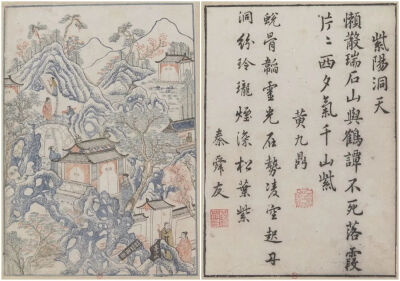 紫陽洞天
懶散瑞石山與鶴譚不死落霞
片〻西夕氣千山紫
黃九鼎
蛻骨韜靈光石勢凌空起丹
洞紛玲瓏煙深松葉紫
秦舜友